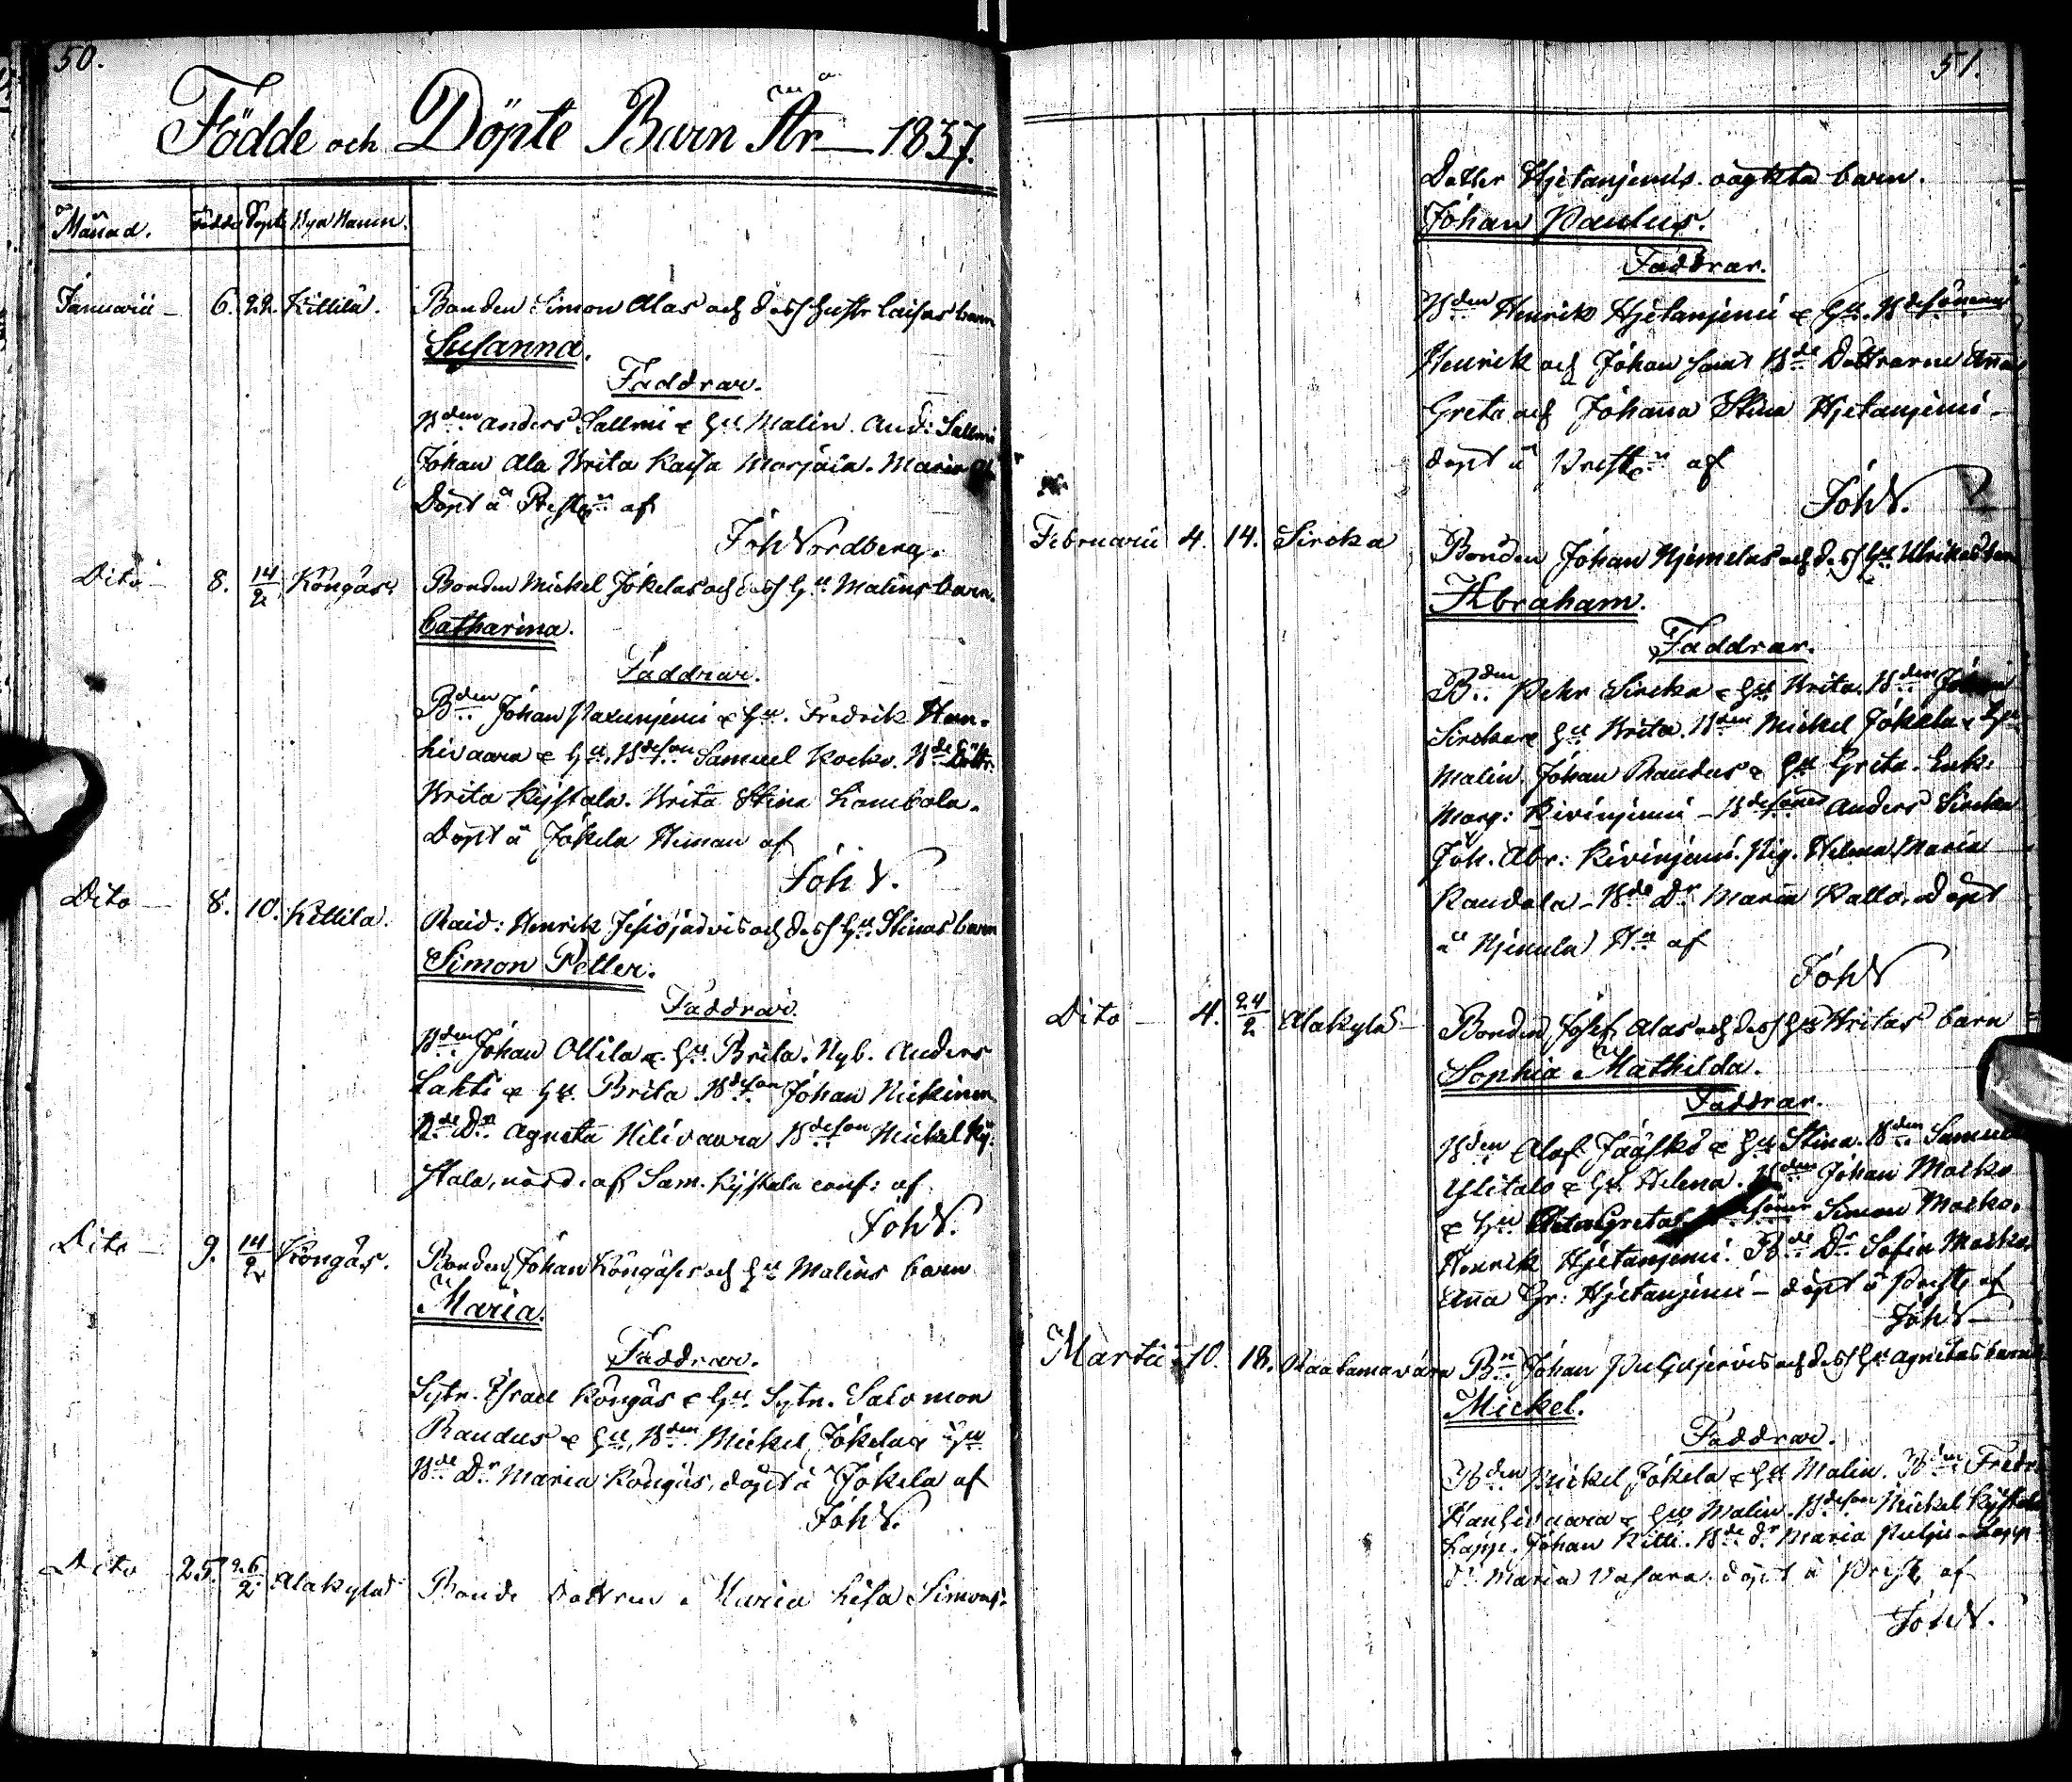 50.
Födde och Döpte Barn År 1837.
Månad. Födde Döpte Bya Namn.
Januarii 6. 22. Kittilä. Bonden Simon Alas och dess hustr Caisas barn
Susanna.
Faddrar.
Bden Anders Sallmi & Hu Malin. And: Sallmi
Johan Ala Brita Kaisa Marjala. Maria
Döpt å Prestg:n af
Joh Nordberg.
Dito 8. 14/2 Köngäs Bonden Mickel Jokelas och dess Hu Malins barn.
Catharina.
Faddrar.
Bden Johan Paxunjemi & Hu. Fredrik Han-
hivaara & Hu, Bdeson Samuel Kocko. Bde Dottr.
Brita Kystala. Brita Stina Kambola.
Döpt å Jokela Heman af
Joh N.
Dito 8. 10. Kittilä. Raid: Henrik Jesiöjärvis och dess Hu Stinas barn
Simon Petter.
Faddrar.
Bden Johan Ollila & Hu. Brita. Nyb. Anders
Lahti & Hu. Brita. Bdeson Johan Nickinen
Bde Dr Agneta Hilivaara Bdeson Mickel Ky-
stala, nöd. af Sam. Kystala conf: af
Joh N.
Dito 9. 14/2 Köngäs. Bonden Johan Köngäses och Hu Malins barn
Maria.
Faddrar.
Sytn. Israel Köngäs & Hu. Sytn. Salomon
Raudus & Hu, Bden Mickel Jokela & Hu
Bde Dr Maria Köngäs, döpt å Jokela af
Joh N.
Dito 25. 26/2 Alakylä Bonde Dottren Maria Lisa Simons
51.
Dotter Hjetanjemis oägkta barn.
Johan Paulus.
Faddrar.
Bden Henrik Hjetanjemi & Hu. Bdesönerne
Henrik och Johan samt Bde Döttrarne Anna
Greta och Johanna Stina Hjetanjemi
döpt å Prestg:n af
Joh N.
Februarii 4. 14. Sircka Bonden Johan Njemelas och dess Hu Ulrikas barn
Abraham.
Faddrar.
Bden Pehr Sircka & Hu Brita. Bden Johan
Sircka & Hu Brita. Bden Mickel Jokela & Hu
Malin. Johan Raudus & Hu Greta. Enk:
Marg: Kivinjemi - Bdesöner Anders Sircka
Joh. Abr: Kivinjemi. Pig. Helena Maria
Raudala - Bde Dr Maria Pallo. döpt
å Njemela Hn af
Joh N
Dito 4. 24/2 Alakylä Bonden Josef Alas och dess Hu Britas barn
Sophia Mathilda.
Faddrar.
Bden Olof Jääskö & Hu Stina. Bden Samuel
Ylitalo & Hu. Helena. Bden Johan Macko
& Hu Greta söner Simon Macko.
Henrik Hjetanjemi. Bde Dr Sofia Macko.
Anna Gr: Hjetanjemi - döpt å Prestg af
Joh N
Martii 10. 18. Raatamavara Bn Johan Puljujervis och dess Hu Agnetas barn
Mickel.
Faddrar.
Bden Mickel Jokela & Hu Malin. Bden Fredr.
Hanhivaara & Hu Malin. Bdeson Mickel Kystala
Lapp. Johan Kitti. Bde dr Maria Pulju - Lapp
dr Maria Vasara. döpt å Prestg af
Joh N.